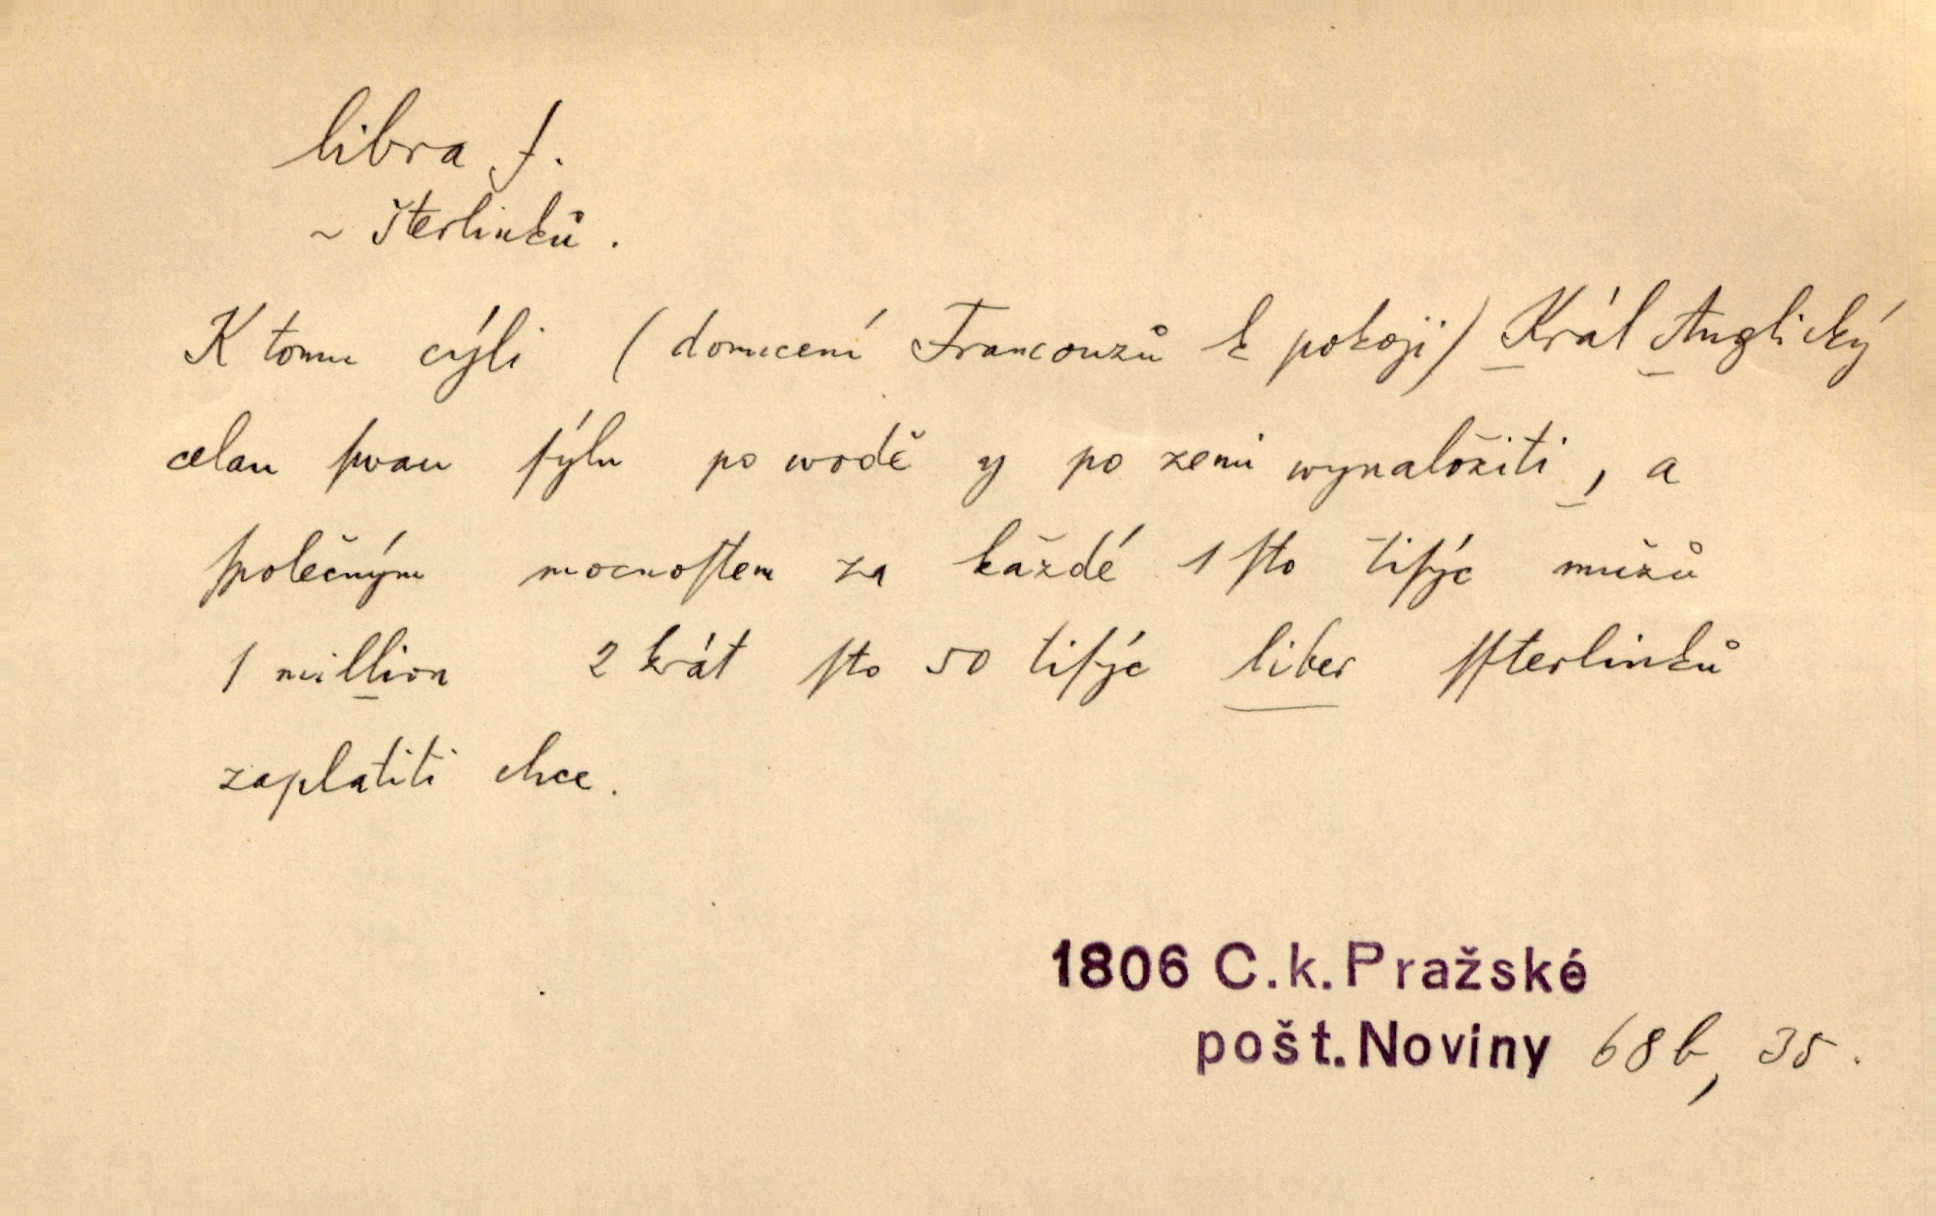 libra f.
~ šterlinků.
K tomu cýli (donucení Francouzů k pokoji) Král Anglický
celau ſwau ſýlu po wodě y po zemi wynaložiti, a
ſpolečným mocnoſtem za každé 1 ſto tiſýc mužů
1 million 2 krát ſto 50 tiſýc liber ſſterlinků
zaplatiti chce.
1806 C.k. Pražské
pošt. Noviny 68b, 35.